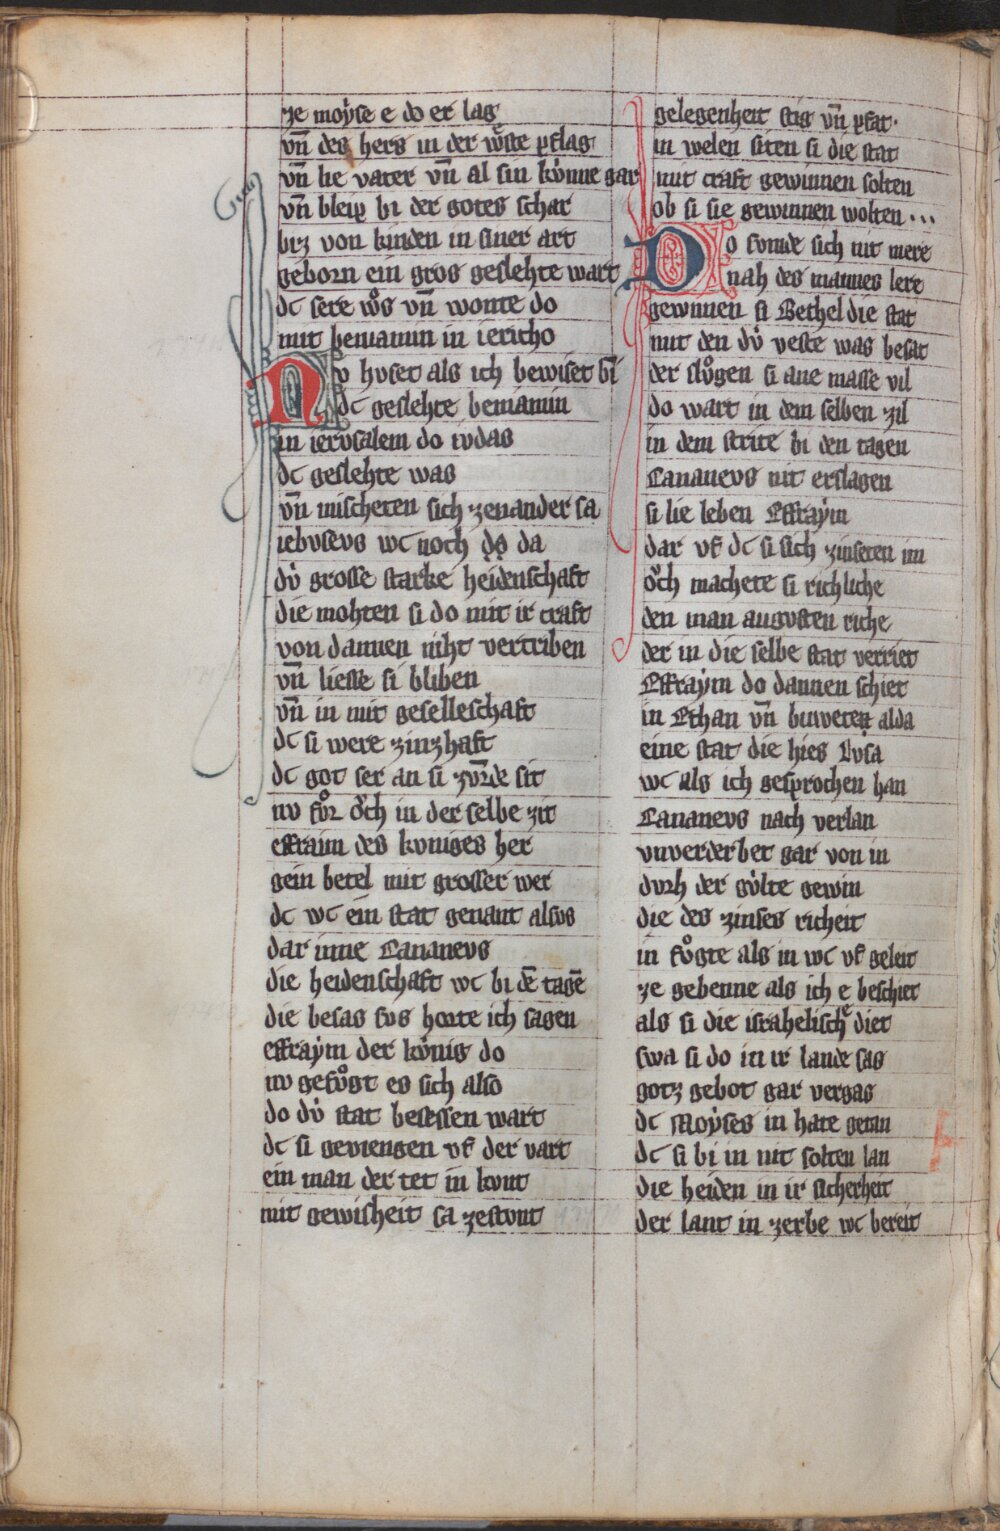 ze moẏse e do er lag
vn̄ des hers in der wͦste pflag
vn̄ lie vater vn̄ al sin kv́nne gar
vn̄ bleip bi der gotes schar
brz von kinden in siner art
geborn ein gros geslehte wart
dc sere wͦs vn̄ wonte do
mit beniamin in iericho
Nv hvset als ich bewiset bī
dc geslehte beniamin
in ierusalem do ivdas
dc geslehte was
vn̄ mischeten sich zenander sa
iebvsevs wc noch do da
dv́ grosse starke heidenschaft
die mohten si do mit ir craft
von dannen niht vertriben
vn̄ liesse si bliben
vn̄ in mit geselleschaft
dc si were zinzhaft
dc got ser an si zvrde sit
nv fvͦr oͮch in der selbe zit
effraim des kvniges her
gein betel mit grosser wer
dc wc ein stat genant alsvs
dar inne Cananevs
die heidenschaft wc bi dē tagē
die besas svs horte ich sagen
effraẏm der kv́nig do
nv gefvͦgt es sich also
do dv́ stat besessen wart
dc si geviengen vf der vart
ein man der tet in kvnt
mit gewisheit sa zestvnt
gelegenheit stig vn̄ pfat·
in welen siten si die stat
mit craft gewinnen solten
ob si sie gewunnen wolten ···
Do svmde sich nit mere
nah des mannes lere
gewinnen si Bethel die stat
mit den dv́ veste was besat
der slvͦgen si ane masse vil
do wart in dem selben zil
in dem strite bi den tagen
Cananevs nit erslagen
si lie leben Effraẏm
dar vf dc si sich zinseten im
oͮch machete si richliche
den man avgvsten riche
der in die selbe stat verriet
Effraẏm do dannen schiet
in Ethan vn̄ buweten alda
eine stat die hies Lvsa
wc als ich gesprochen han
Cananevs nach verlan
vnverderbet gar von in
dvrh der gv́lte gewin
die des zinses richeit
in fvͦgte als in wc vf geleit
ze gebenne als ich e beschiet
als si die israhelische diet
swa si do in ir lande sas
gotz gebot gar vergas
dc Moẏses in hate getan
dc si bi in nit solten lan
die heiden in ir sicherheit
der lant in zerbe wc bereit